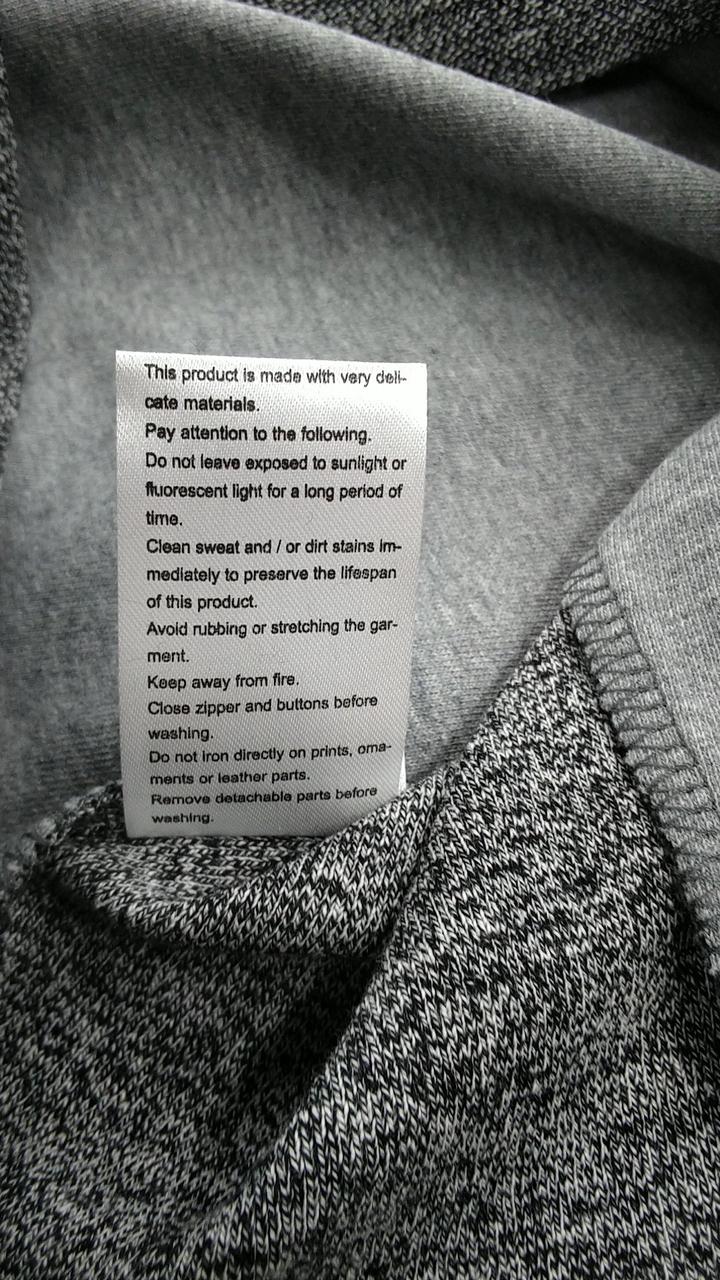 This product is made with very deli-
cate materials.
Pay attention to the following.
Do not leave exposed to sunlight or
fluorescent light for a long period of
time.
Clean sweat and / or dirt stains im-
mediately to preserve the lifespan
of this product.
Avoid rubbing or stretching the gar-
ment.
Keep away from fire.
Close zipper and buttons before
washing.
Do not iron directly on prints, orna-
ments or leather parts.
Remove detachable parts before
washing.